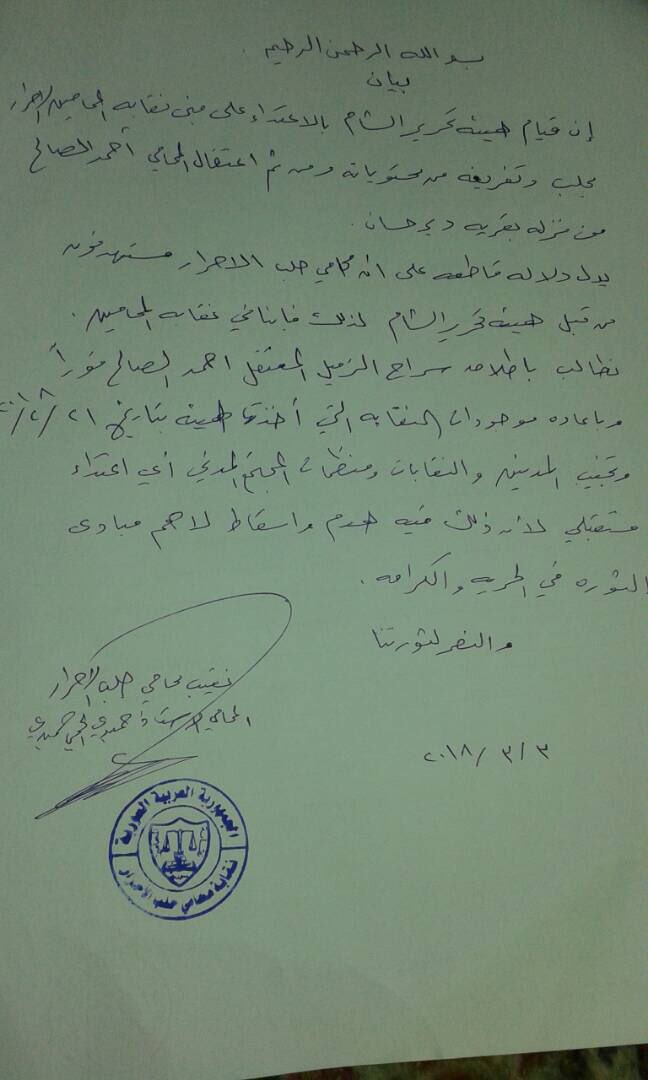 بسم الله الرحمن الرحيم.
بيان
إن قيام هيئة تحرير الشام بالاعتداء على مبنى نقابه المحامين الاحرار
بحلب وتفريغه من محتوياته ومن ثم اعتقال المحامي أحمد الصالح
من منزله بقريه ديرحسان.
يدل دلاله قاطعه على ان محامي حلب الاحرار مستهدفون
من قبل هيئة تحرير الشام لذلك فإننا في نقابه المحامين.
نطالب باطلاق سراح الزميل المعتقل احمد الصالح فوراً
وباعاده موجودات النقابه التي أخذتها الهيئة بتاريخ ٢١/٢/٢٠١٨
وتجنيب المدنين والنقابات ومنظمات المجتمع المدني أي اعتداء
مستقبلي لأن ذلك فيه هدم واسقاط لاهم مبادئ
الثوره في الحريه والكرامه.
والنصر لثورتنا
نقيب محامي حلب الاحرار
المحامي الاستاذ حميدي
٢٠١٨/٣/٣
الجمهورية العربية السورية
نقابة محامي حلب الأحرار